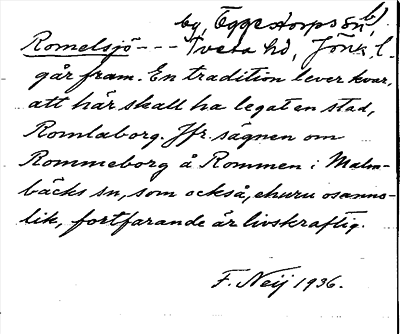 by, Eggestorps sn,
Romelsjö --- Tveta hd, Jönk. l.
går fram. En tradition lever kvar,
att här skall ha legat en stad,
Romlaborg. Jfr. sägnen om
Rommeborg å Rommen i Malm-
bäcks sn, som också, ehuru osanno-
lik, fortfarande är livskraftig.
F. Neij 1936.